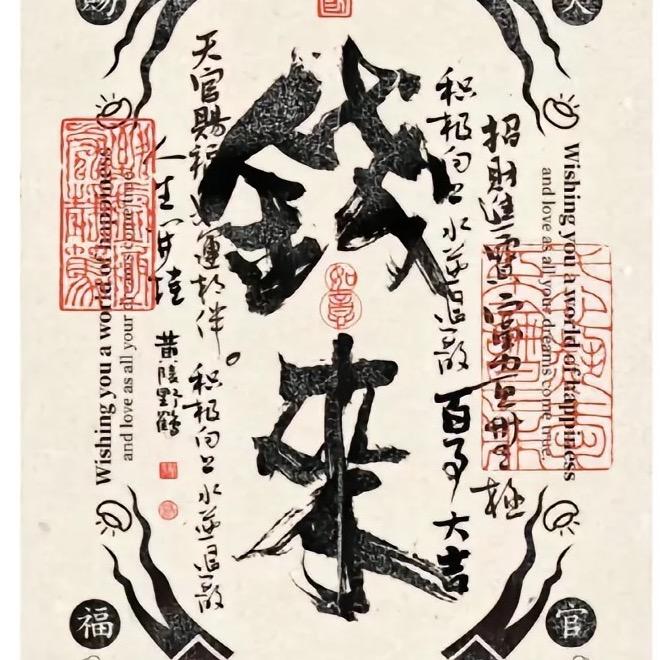 天
賜
福
官
錢
来
如意
招財進寶
积极向上 水逆退散 百事大吉
天官賜福 好運相伴 积极向上 水逆退散
人生開挂
黄陵野鶴
Wishing you a world of happiness
and love as all your dreams come true.
Wishing you a world of happiness
and love as all your dreams come true.